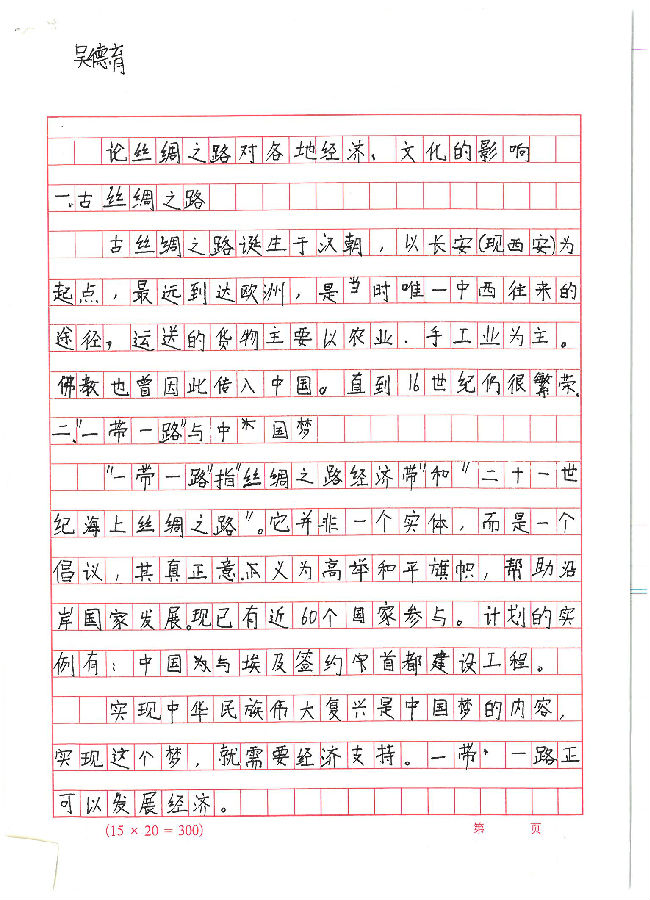 吴德育
论丝绸之路对各地经济、文化的影响
一.古丝绸之路
古丝绸之路诞生于汉朝，以长安(现西安)为
起点，最远到达欧洲，是当时唯一中西往来的
途径，运送的货物主要以农业.手工业为主。
佛教也曾因此传入中国。直到16世纪仍很繁荣.
二."一带一路"与中国梦
"一带一路"指"丝绸之路经济带"和"二十一世
纪海上丝绸之路"。它并非一个实体，而是一个
倡议，其真正意义为高举和平旗帜，帮助沿
岸国家发展.现已有近60个国家参与。计划的实
例有：中国与埃及签约首都建设工程。
实现中华民族伟大复兴是中国梦的内容，
实现这个梦，就需要经济支持。一带一路正
可以发展经济。
(15 × 20 = 300) 第 页